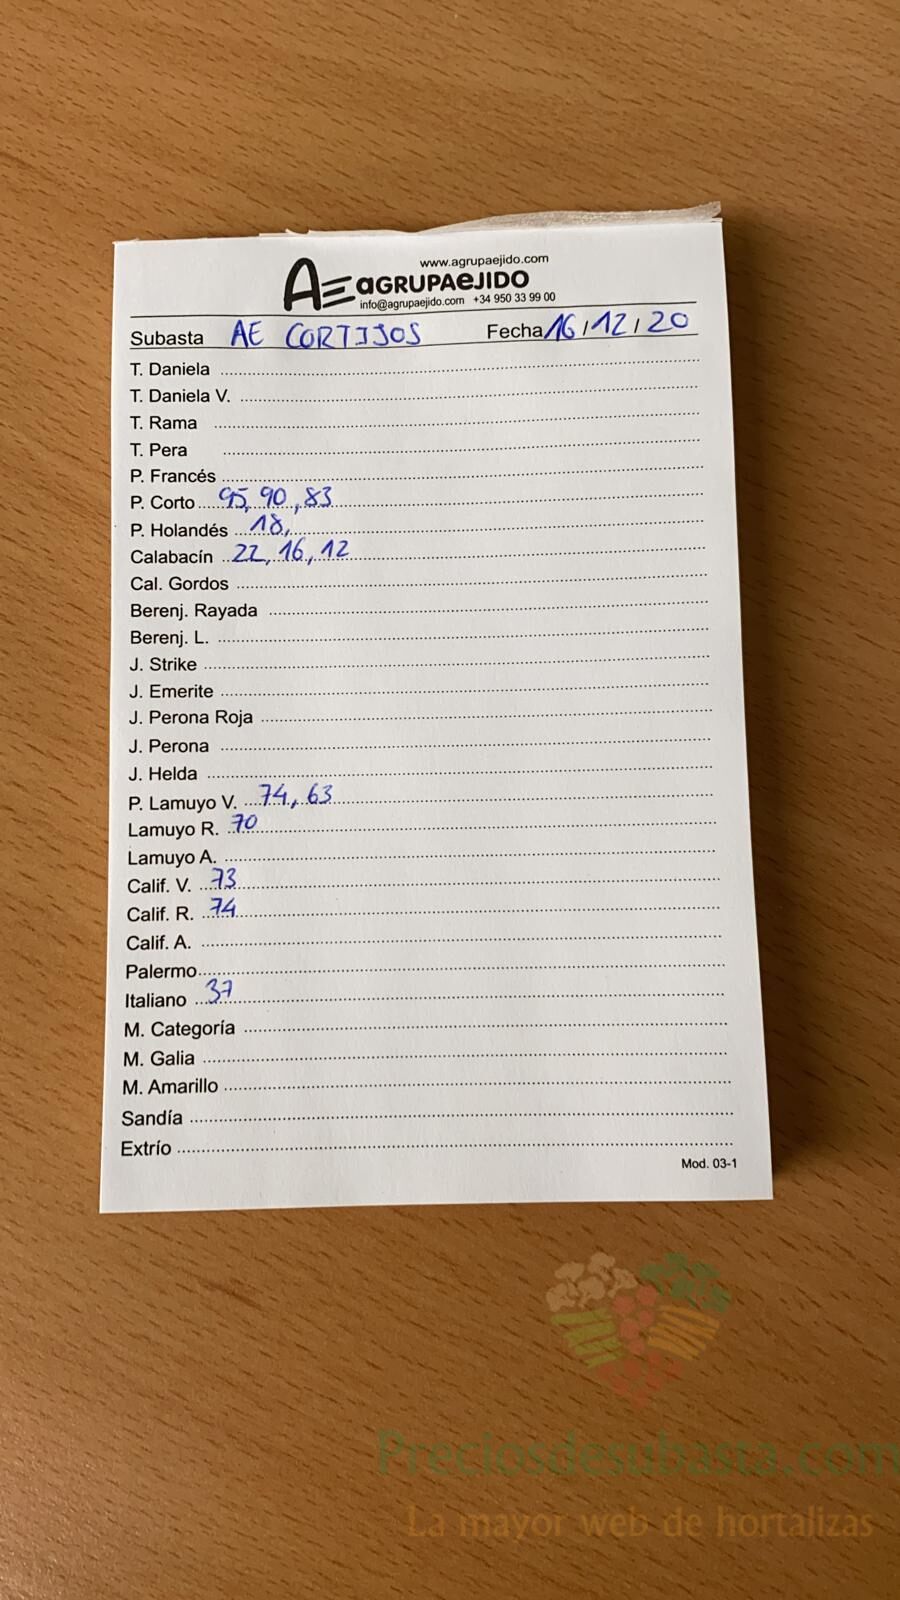 www.agrupaejido.com
AE AGRUPAEJIDO
info@agrupaejido.com +34 950 33 99 00
Subasta AE CORTIJOS Fecha 16/12/20
T. Daniela
T. Daniela V.
T. Rama
T. Pera
P. Francés
P. Corto 95, 90, 83
P. Holandés 18,
Calabacín 22, 16, 12
Cal. Gordos
Berenj. Rayada
Berenj. L.
J. Strike
J. Emerite
J. Perona Roja
J. Perona
J. Helda
P. Lamuyo V. 74, 63
Lamuyo R. 70
Lamuyo A.
Calif. V. 73
Calif. R. 74
Calif. A.
Palermo
Italiano 37
M. Categoría
M. Galia
M. Amarillo
Sandía
Extrío
Mod. 03-1
Preciosdesubasta.com
La mayor web de hortalizas